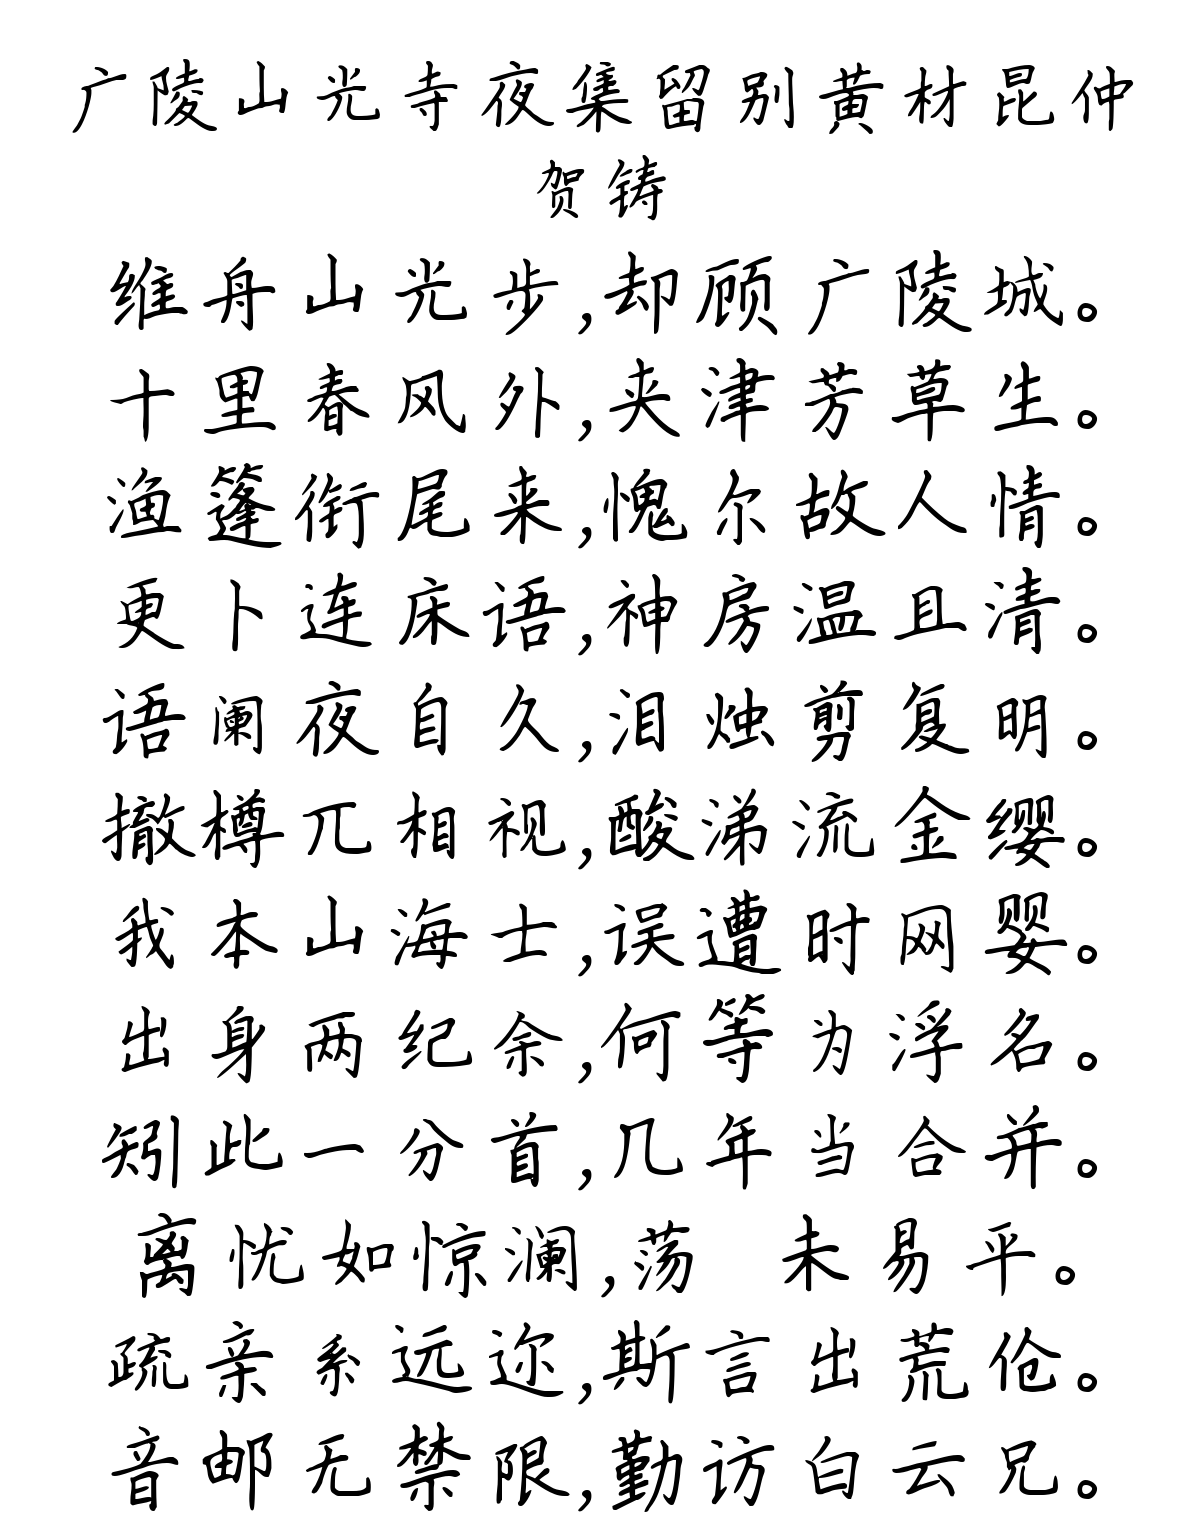 广陵山光寺夜集留别黄材昆仲
贺铸
维舟山光步,却顾广陵城。
十里春风外,夹津芳草生。
渔篷衔尾来,愧尔故人情。
更卜连床语,神房温且清。
语阑夜自久,泪烛剪复明。
撤樽兀相视,酸涕流金缨。
我本山海士,误遭时网婴。
出身两纪余,何等为浮名。
矧此一分首,几年当合并。
离忧如惊澜,荡 未易平。
疏亲系远迩,斯言出荒伧。
音邮无禁限,勤访白云兄。